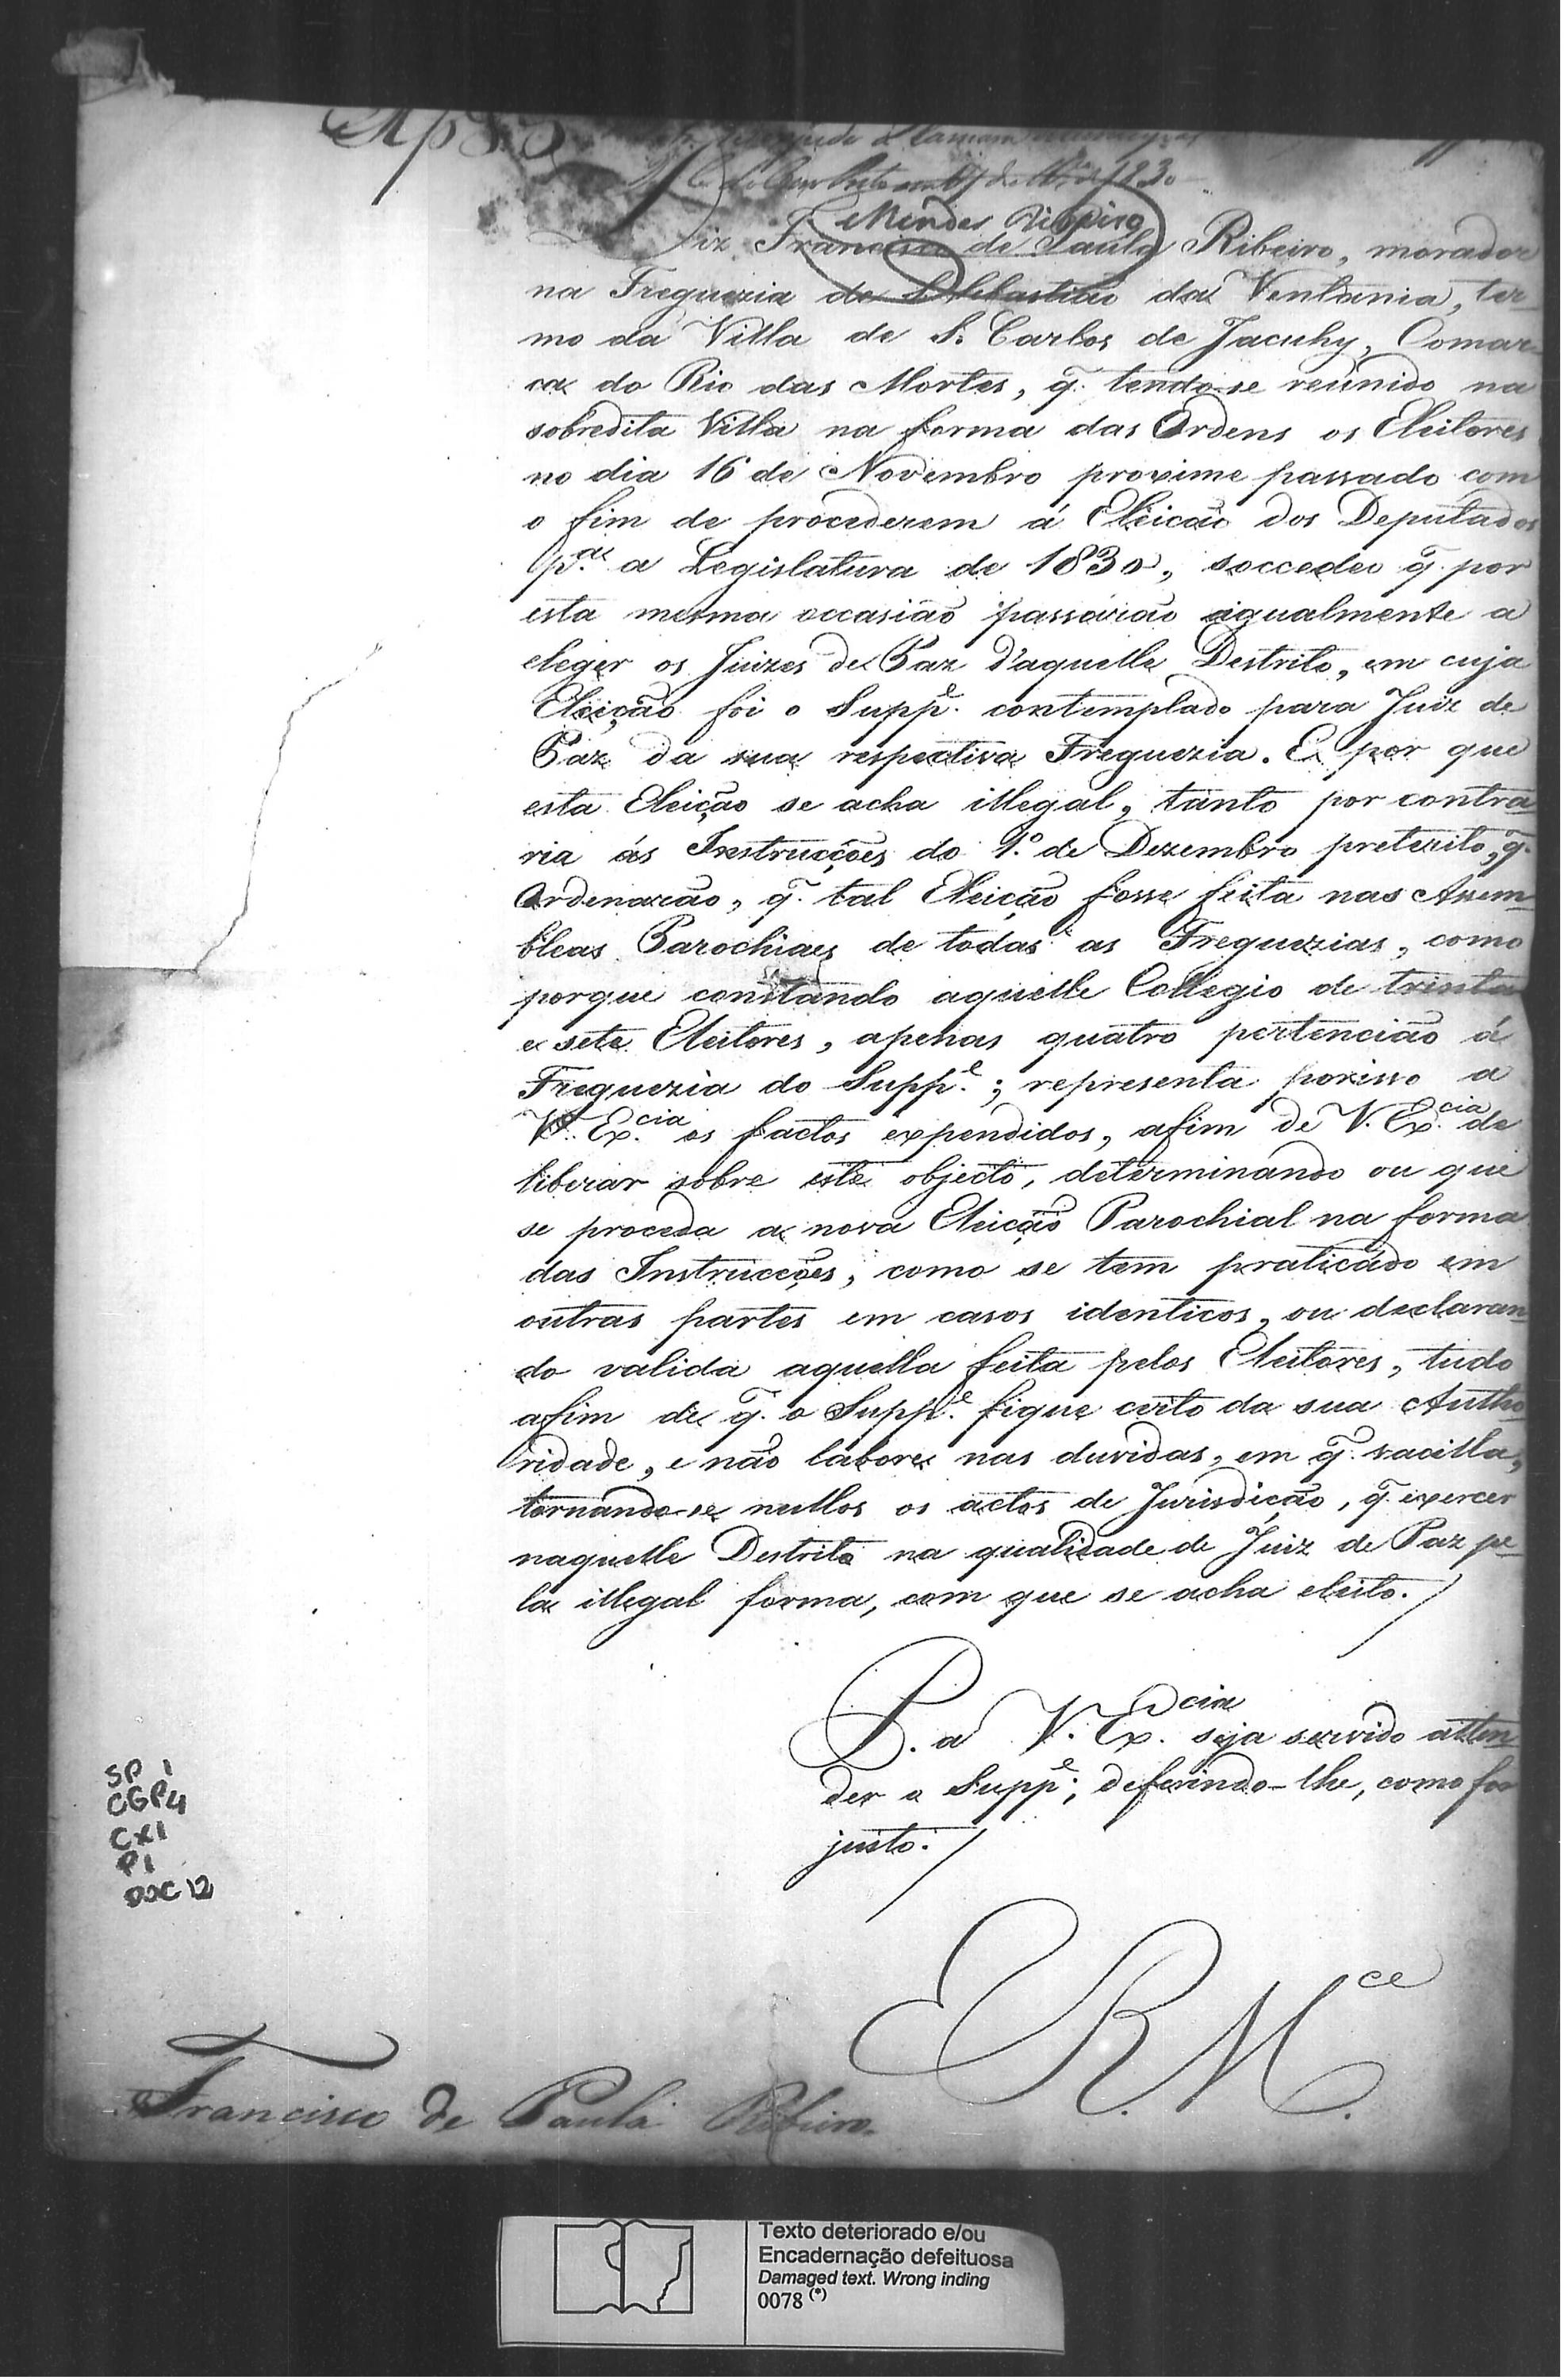 de 1830
Mendes Ribeiro
Diz Francisco de Paula Ribeiro, morador
na Freguezia de S. Sebastião da Ventania, ter-
mo da Villa de S. Carlos de Jacuhy, Comar-
ca do Rio das Mortes, q. tendo-se reunido na
sobredita Villa na forma das Ordens os Eleitores
no dia 16 de Novembro proximo passado com
o fim de procederem á Eleição dos Deputados
p.ª a Legislatura de 1830, soccedeo q. por
esta mesma occasião passárão igualmente a
eleger os Juizes de Paz d'aquelle Destrito, em cuja
Eleição foi o Supp.e contemplado para Juiz de
Paz da sua respectiva Freguezia. E por que
esta Eleição se acha illegal, tanto por contra-
ria ás Instrucções do 1.º de Dezembro preterito, q.
Ordenarão, q. tal Eleição fosse feita nas Assem-
bleas Parochiaes de todas as Freguezias, como
porque constando aquelle Collegio de trinta
e sete Eleitores, apenas quatro pertencião á
Freguezia do Supp.e; representa porisso a
V. Ex.cia os factos expendidos, afim de V. Ex.cia de
liberar sobre este objecto, determinando ou que
se proceda a nova Eleição Parochial na forma
das Instrucções, como se tem praticado em
outras partes em casos identicos, ou declaran-
do valida aquella feita pelos Eleitores, tudo
afim de q. o Supp.e fique certo da sua Autho-
ridade, e não labore nas duvidas, em q. vacilla,
tornando-se nullos os actos de Jurisdição, q. exercer
naquelle Destrito na qualidade de Juiz de Paz pe-
la illegal forma, com que se acha eleito.
P. a V. Ex.cia seja servido atten-
der o Supp.e; deferindo-lhe, como for
justo.
E. R. M.ce
SP 1
CGP4
CX1
P1
DOC 12
Francisco de Paula Ribeiro.
Texto deteriorado e/ou
Encadernação defeituosa
Damaged text. Wrong inding
0078 (*)